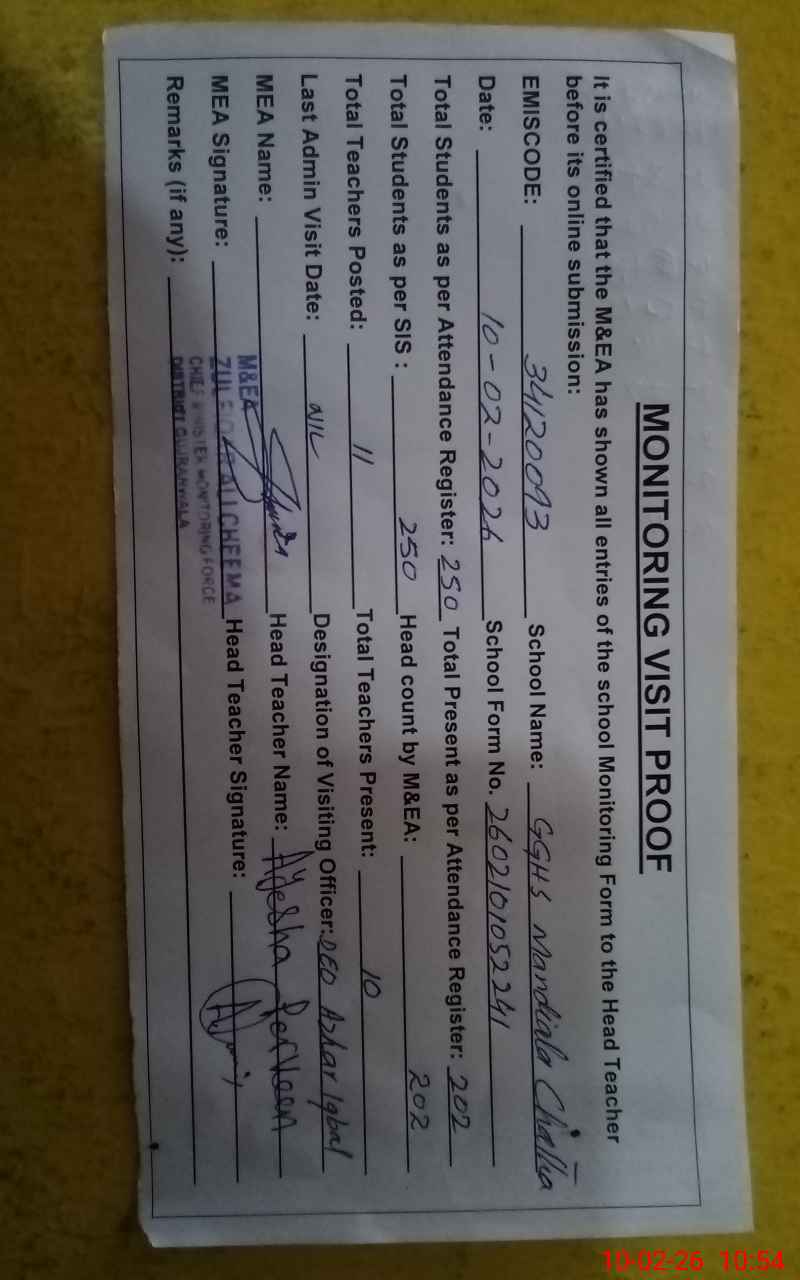 MONITORING VISIT PROOF
It is certified that the M&EA has shown all entries of the school Monitoring Form to the Head Teacher
before its online submission:
EMISCODE: 34120093 School Name: GGHS Mandiala Chatha
Date: 10-02-2026 School Form No. 2602101052241
Total Students as per Attendance Register: 250 Total Present as per Attendance Register: 202
Total Students as per SIS : 250 Head count by M&EA: 202
Total Teachers Posted: 11 Total Teachers Present: 10
Last Admin Visit Date: NIL Designation of Visiting Officer: DEO Azhar Iqbal
MEA Name: Head Teacher Name: Ayesha Perveen
M&EA
MEA Signature: ALI CHEEMA Head Teacher Signature:
CHIEF MINISTER MONITORING FORCE
Remarks (if any): DISTRICT GUJRANWALA
10-02-26 10:54